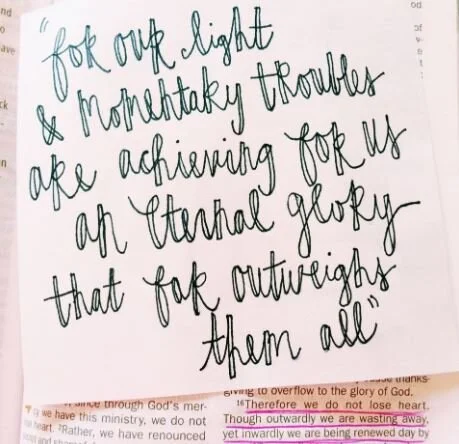 "for our light
& momentary troubles
are achieving for us
an eternal glory
that far outweighs
them all"
giving to overflow to the glory of God.
16Therefore we do not lose heart.
Though outwardly we are wasting away,
yet inwardly we are being renewed day by
through God's mer-
we have this ministry, we do not
heart. 2Rather, we have renounced